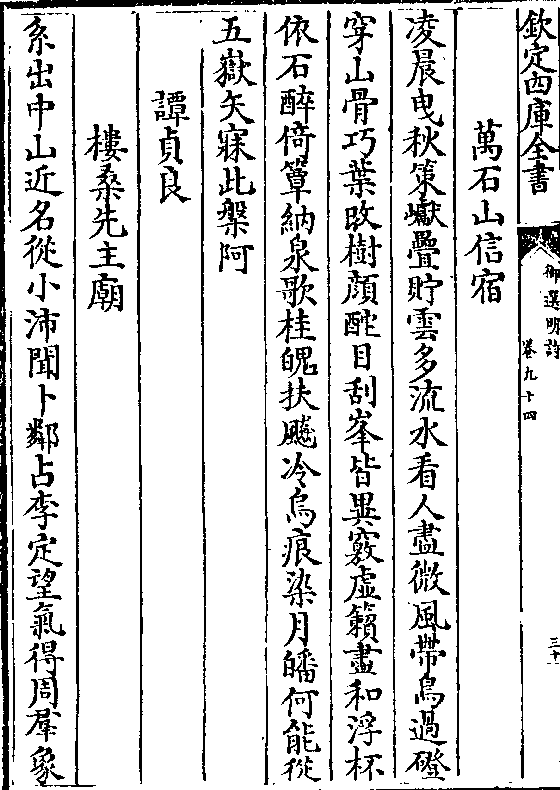 欽定四庫全書
御選明詩
卷九十四
三十
萬石山信宿
凌晨曳秋策巘疊貯雲多流水看人盡微風帶鳥過磴
穿山骨巧葉改樹顔酡目刮峯皆異竅虛籟盡和浮杯
依石醉倚簟納泉歌桂魄扶飈冷烏痕染月皤何能從
五嶽矢寐此槃阿
譚貞良
樓桑先主廟
系出中山近名從小沛聞卜鄰占李定望氣得周羣象